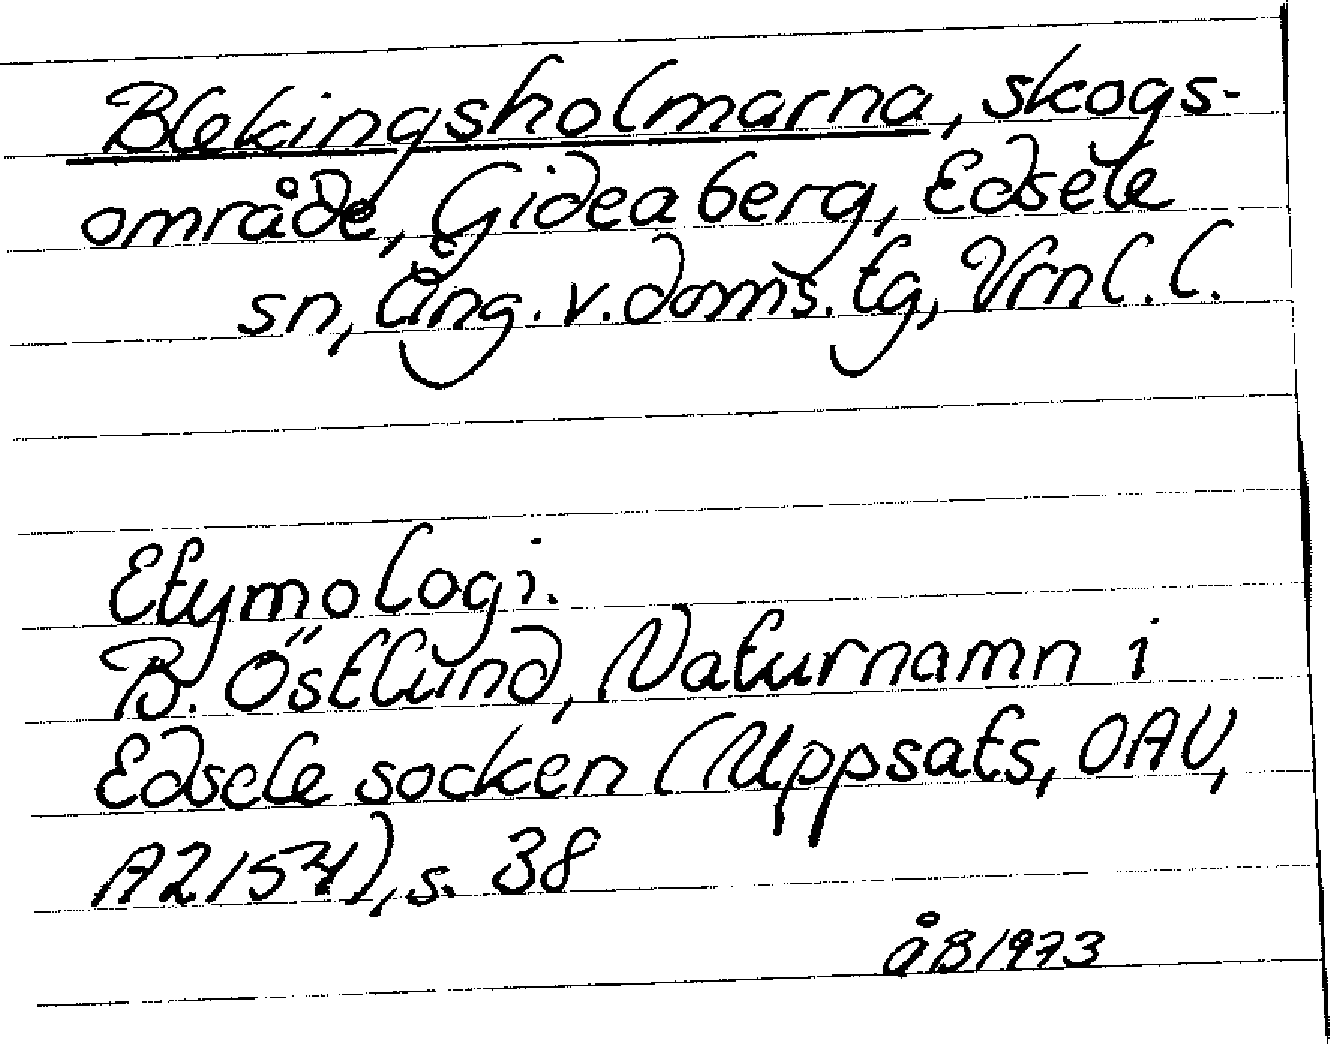 Blekingsholmarna, skogs-
område, Gideaberg, Edsele
sn, Ång. v. doms. tg, Vrnl. l.
Etymologi.
B. Östlund, Naturnamn i
Edsele socken (Uppsats, OAU,
A2154), s. 38
åB 1973